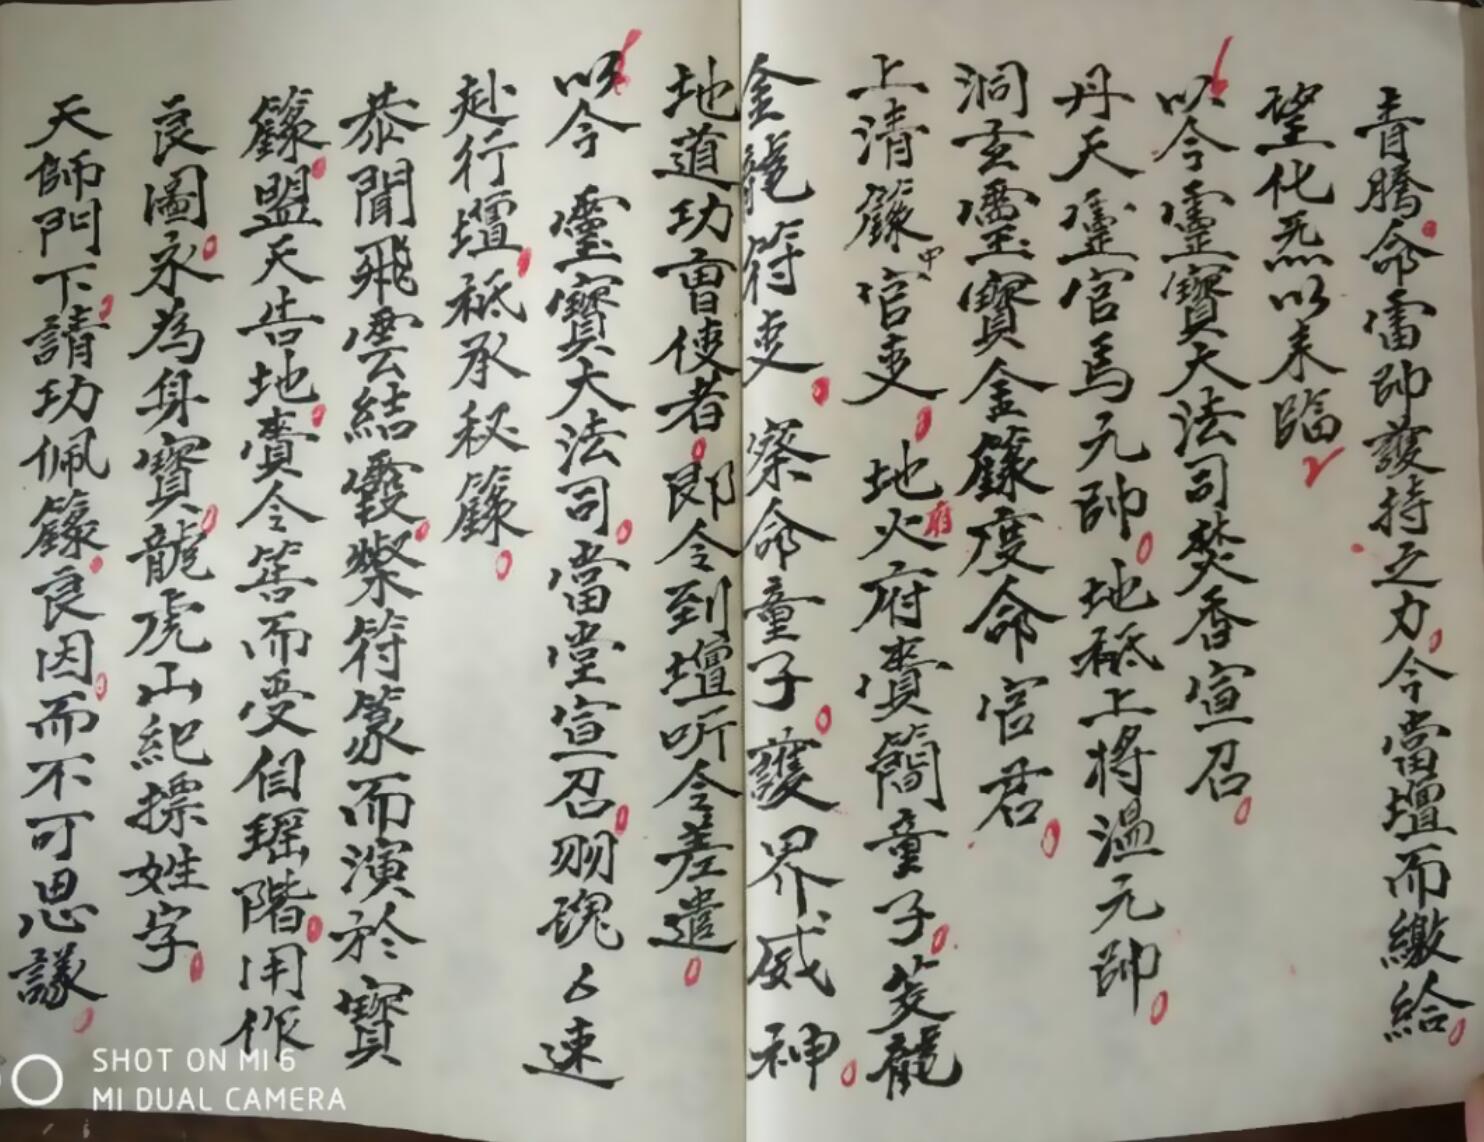 青騰命雷帅護持之力今當壇而繳給
望化炁以来臨
以今靈寶大法司焚香宣召
丹天靈官馬元帅地祇上将温元帅
洞玄靈寶金籙度命官君
上清籙中官吏地火府賷簡童子茭龍
金龍符吏察命童子護界威神
地道功曹使者即令到壇听令差遣
以今靈寶大法司當堂宣召羽魂厶速
赴行壇祗承秘籙
恭聞飛雲結靉粲符篆而演於寶
籙盟天告地賷令筶而受自瑶階用作
良圖永為身寶龍虎山紀摽姓字
天師門下請功佩籙良因而不可思議
SHOT ON MI 6
MI DUAL CAMERA